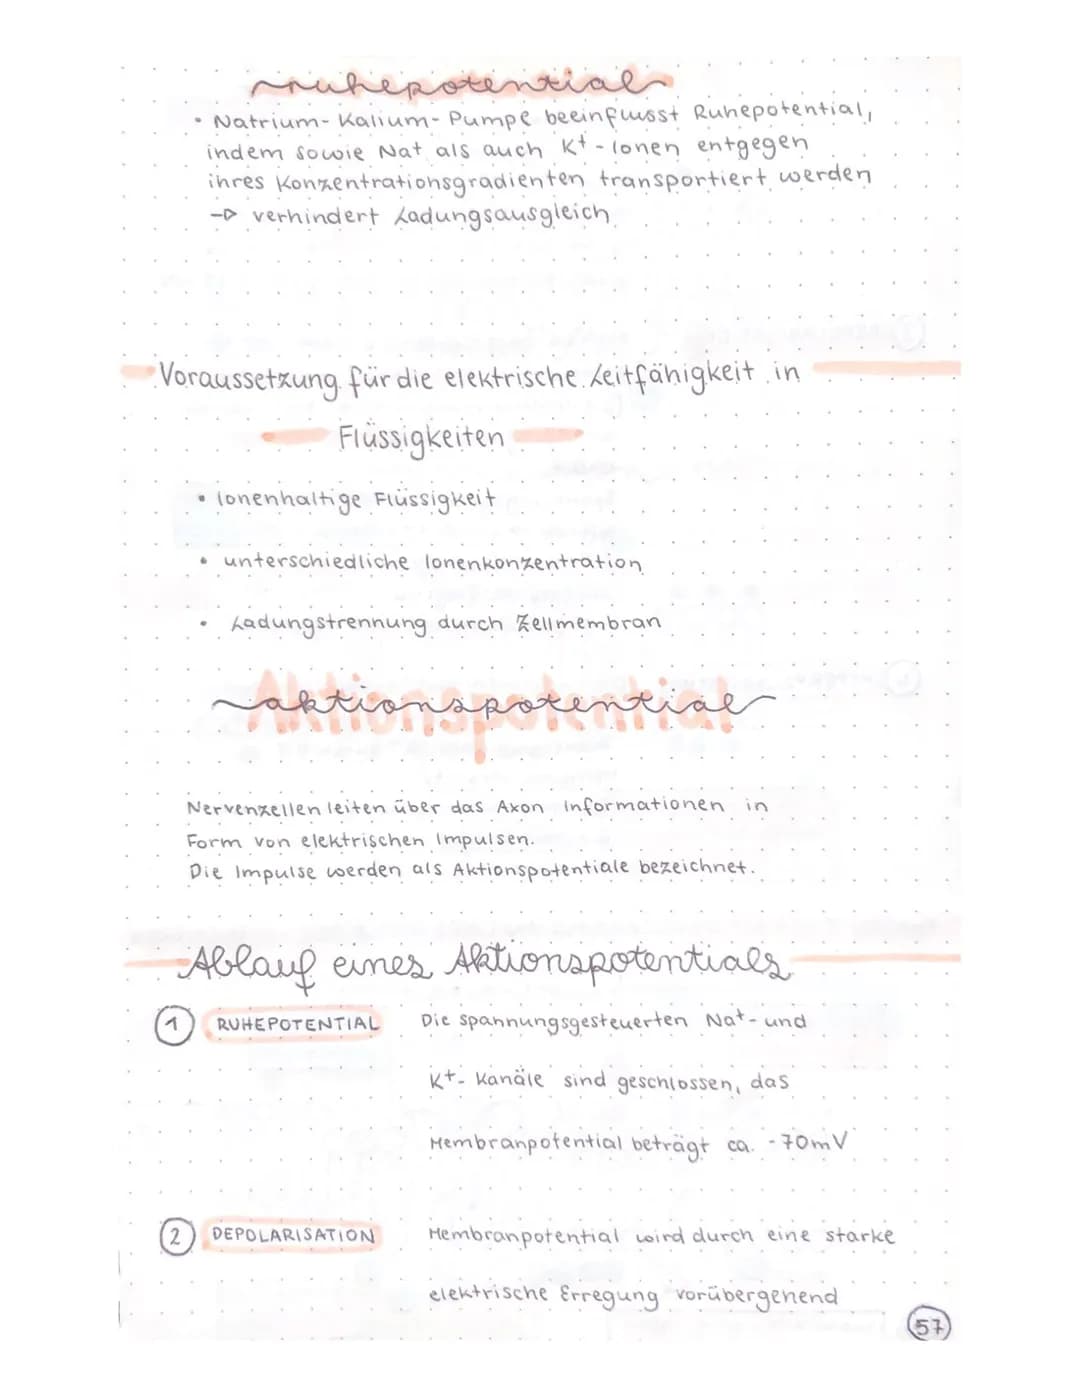 ruhepotential
• Natrium-Kalium-Pumpe beeinflusst Ruhepotential,
indem sowie Na+ als auch K+-Ionen entgegen
ihres Konzentrationsgradienten transportiert werden
→ verhindert Ladungsausgleich
Voraussetzung für die elektrische Leitfähigkeit in
Flüssigkeiten
• Ionenhaltige Flüssigkeit
• unterschiedliche Ionenkonzentration
• Ladungstrennung durch Zellmembran
Aktionspotential
aktionspotential
Nervenzellen leiten über das Axon Informationen in
Form von elektrischen Impulsen.
Die Impulse werden als Aktionspotentiale bezeichnet.
Ablauf eines Aktionspotentials
1 RUHEPOTENTIAL Die spannungsgesteuerten Na+- und
K+- Kanäle sind geschlossen, das
Membranpotential beträgt ca. -70mV
2 DEPOLARISATION Membranpotential wird durch eine starke
elektrische Erregung vorübergehend
57